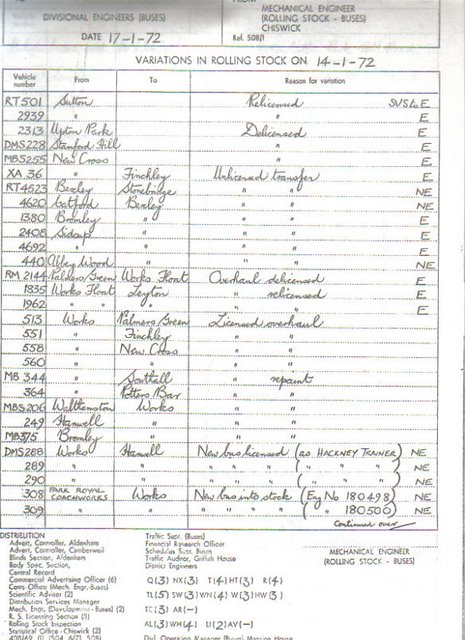 MECHANICAL ENGINEER
DIVISIONAL ENGINEERS (BUSES) (ROLLING STOCK - BUSES)
CHISWICK
DATE 17-1-72 Ref. 508/1
VARIATIONS IN ROLLING STOCK ON 14-1-72
Vehicle number From To Reason for variation
RT501 Sutton Relicensed SVS to E
2939 " " E
2313 Upton Park Delicensed E
DMS228 Stamford Hill " E
MBS255 New Cross " E
XA 36 " Finchley Unlicensed transfer E
RT4523 Bexley Stonebridge " " NE
4620 Catford Bexley " " NE
1380 Bromley " " " E
2408 Sidcup " " " E
4692 " " " " E
440 Abbey Wood " " " NE
RM 2144 Palmers Green Works Float Overhaul delicensed E
1835 Works Float Leyton " relicensed E
1962 " " " " " E
513 Works Palmers Green Licensed overhaul
551 " Finchley " "
558 " New Cross " "
560 " " " "
MB 344 " Southall " repaint
364 " Potters Bar " "
MBS206 Walthamstow Works " "
249 Hanwell " " "
MB375 Bromley " " "
DMS288 Works Hanwell New bus licensed (as HACKNEY TRAINER) NE
289 " " " " " ( " " " ) NE
290 " " " " " ( " " " ) NE
308 PARK ROYAL COACHWORKS Works New bus into stock (Eng No 180498) NE
309 " " " " " " ( " " 180506) NE
Continued over
DISTRIBUTION
Advert. Controller, Aldenham Traffic Supt. (Buses)
Advert. Controller, Camberwell Financial Research Officer
Blinds Section, Aldenham Schedules Supt. Buses
Body Spec. Section, Traffic Auditor, Griffith House
Central Record District Engineers
MECHANICAL ENGINEER
(ROLLING STOCK - BUSES)
Commercial Advertising Officer (6) Q(3) NX(3) T(4) HT(3) R(4)
Cats Office (Mech. Engr.-Buses)
Scientific Adviser (2) TL(5) SW(3) WN(4) W(3) HW(3)
Distribution Services Manager
Mech. Engr. (Development - Buses) (2) TC(3) AR(-)
R. S. Licensing Section (3)
Rolling Stock Inspection AL(3) WH(4) U(2) AV(-)
Statistical Office - Chiswick (2)